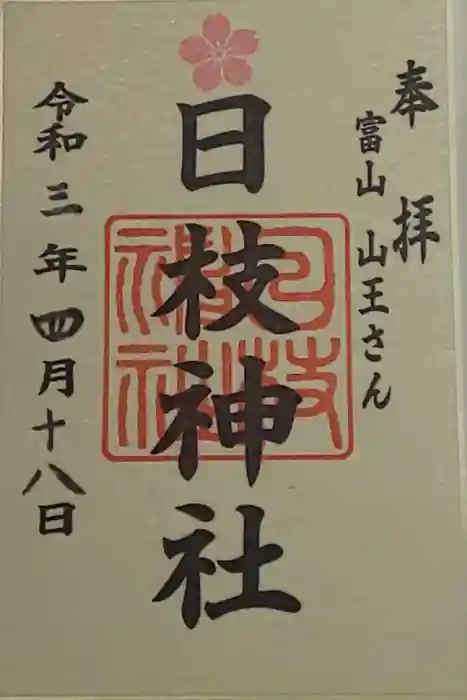 奉拝
富山 山王さん
日枝神社
日枝神社
令和三年四月十八日